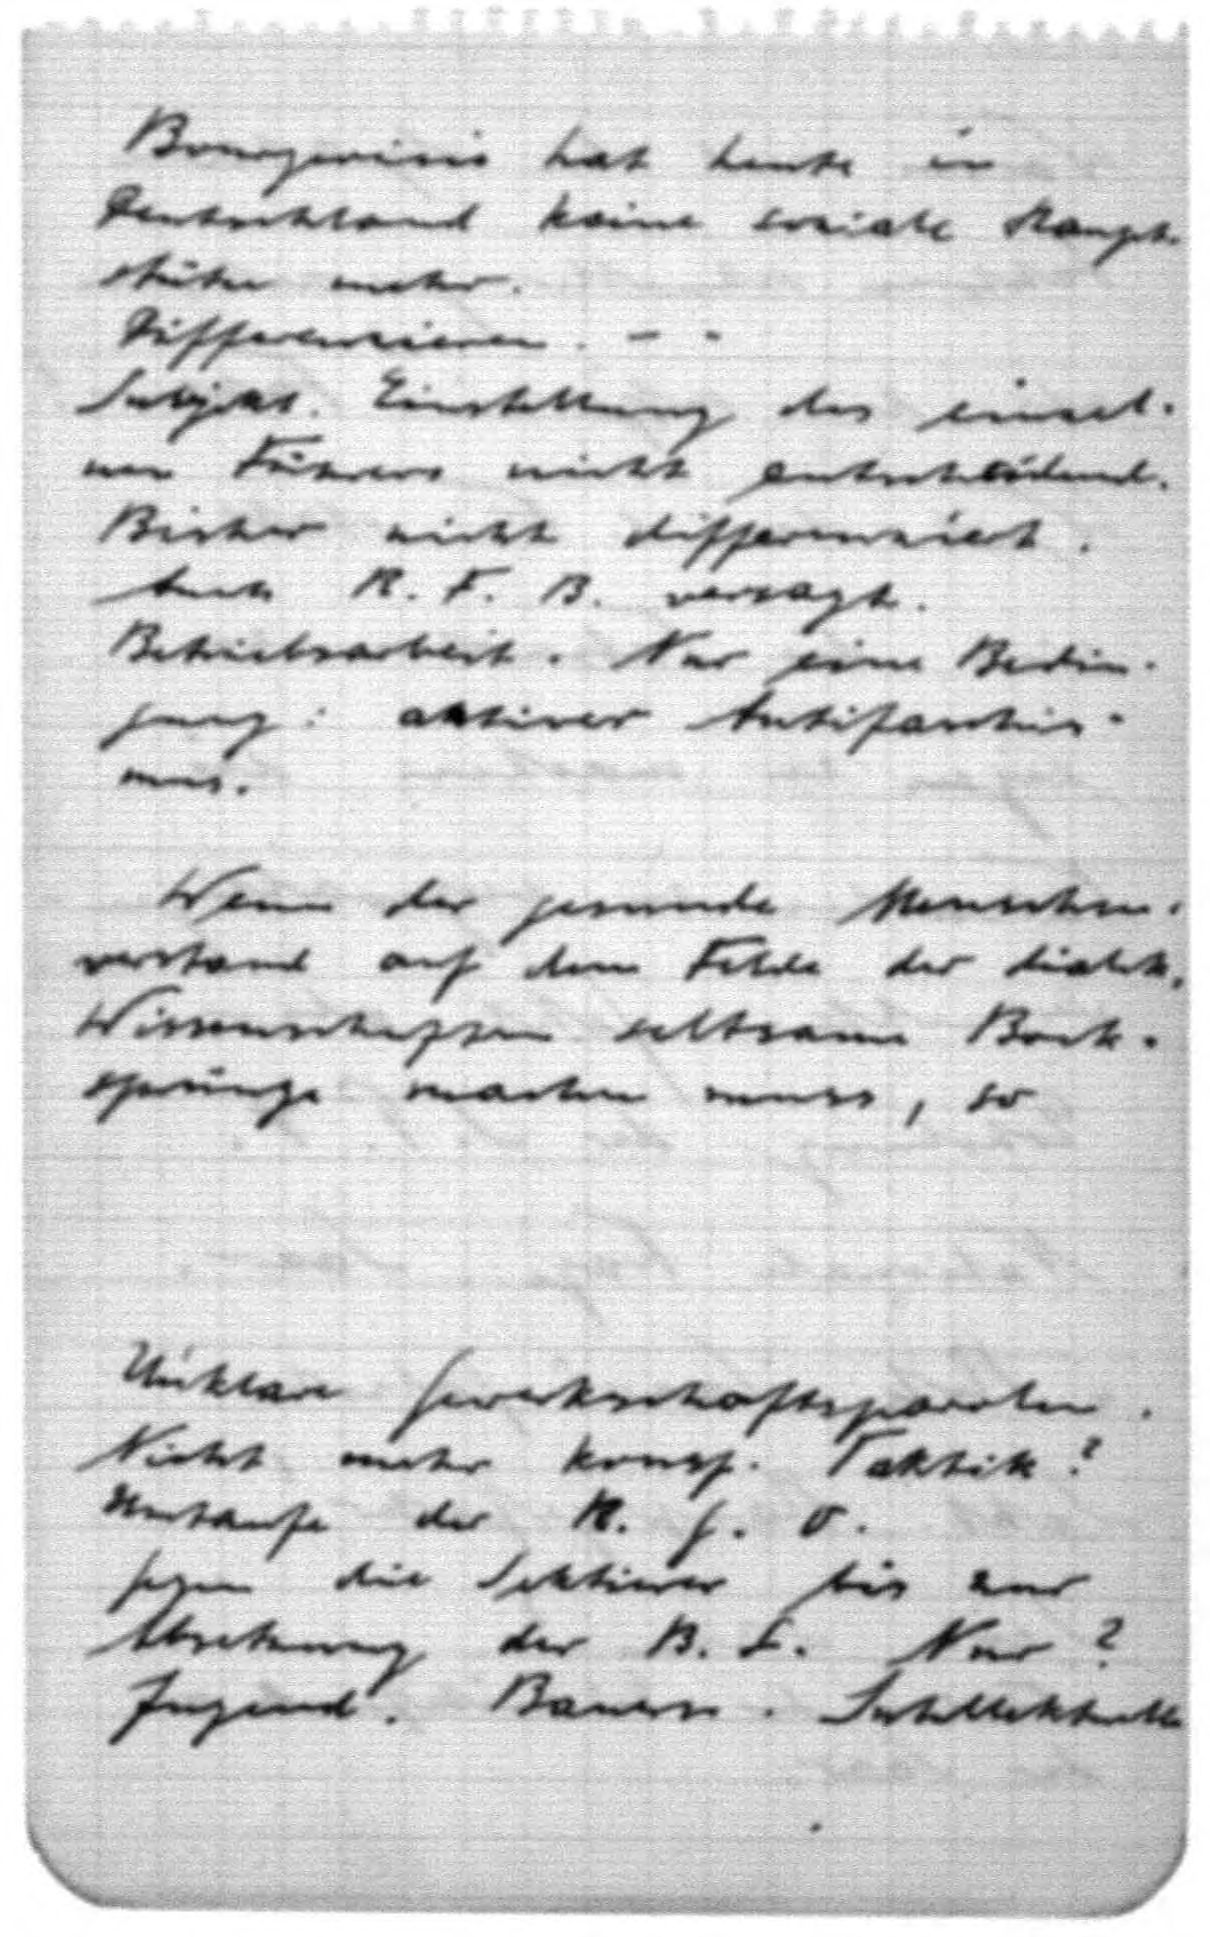 Bourgeoisie hat heute in
Deutschland keine soziale Haupt-
stütze mehr.
Differenzieren. - -
Subjekt. Einstellung des einzel-
nen Führers nicht entscheidend.
Bisher nicht differenziert.
Auch R. F. B. versagt.
Betriebsarbeit. Nur eine Bedin-
gung: aktiver Antifaschis-
mus.
Wenn der gesunde Menschen-
verstand auf dem Felde der dialekt.
Wissenschaften seltsame Bock-
sprünge machen muss, so
Unklare Gewerkschaftsparolen.
Nicht mehr konsp. Taktik?
Umtaufe der R. G. O.
Gegen die Sektierer bis zur
Absetzung der B. L. Nur?
Jugend. Bauern. Intellektuelle